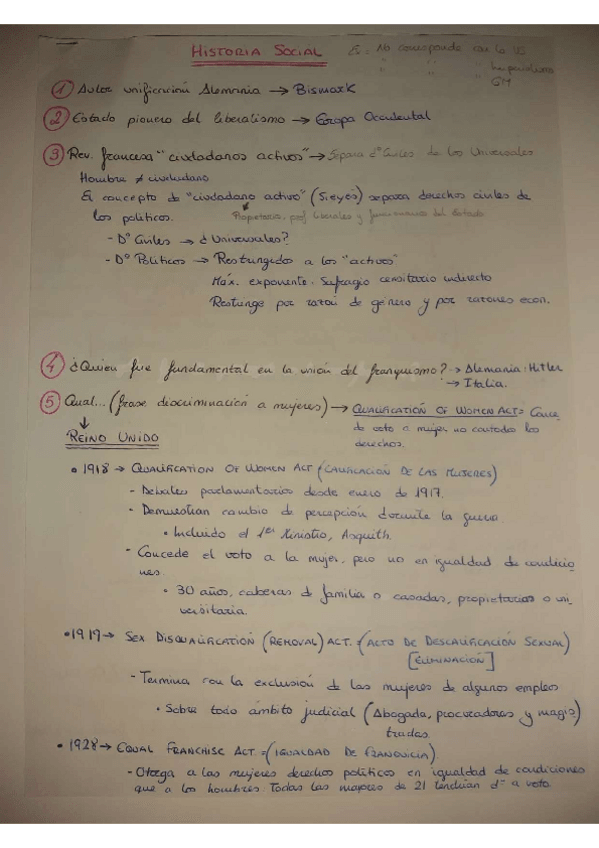 HISTORIA SOCIAL
Ex. No corresponde con la
" " Imperialismo
GM
① Autor unificación Alemania → Bismark
② Estado pionero del liberalismo → Europa Occidental
③ Rev. francesa "ciudadanos activos" → Separa dº civiles de los Universales
Hombre ≠ ciudadano
El concepto de "ciudadano activo" (Sieyès) separa derechos civiles de
los políticos.
Propietarios, prof liberales y funcionarios del Estado
- Dº Civiles → ¿Universales?
- Dº Políticos → Restringidos a los "activos"
Máx. exponente. Sufragio censitario indirecto
Restringe por razón de género y por razones econ.
④ ¿Quien fue fundamental en la unión del franquismo? → Alemania: Hitler
→ Italia.
⑤ Qual... (frase discriminación a mujeres) → QUALIFICATION OF WOMEN ACT = Conce
de voto a mujer no contados los
derechos.
↓
REINO UNIDO
• 1918 → QUALIFICATION OF WOMEN ACT (CALIFICACIÓN DE LAS MUJERES)
- Debates parlamentarios desde enero de 1917.
- Demuestran cambio de percepción durante la guerra
• Incluido el 1er Ministro, Asquith.
- Concede el voto a la mujer, pero no en igualdad de condicio
nes.
• 30 años, cabezas de familia o casadas, propietarias o uni
versitaria.
• 1919 → SEX DISQUALIFICATION (REMOVAL) ACT. (ACTO DE DESCALIFICACIÓN SEXUAL)
[ELIMINACIÓN]
- Termina con la exclusión de las mujeres de algunos empleos
• Sobre todo ámbito judicial (Abogada, procuradoras y magis)
tradas.
• 1928 → EQUAL FRANCHISE ACT. = (IGUALDAD DE FRANQUICIA)
- Otorga a las mujeres derechos políticos en igualdad de condiciones
que a los hombres. Todas las mayores de 21 tendrían dº a voto.